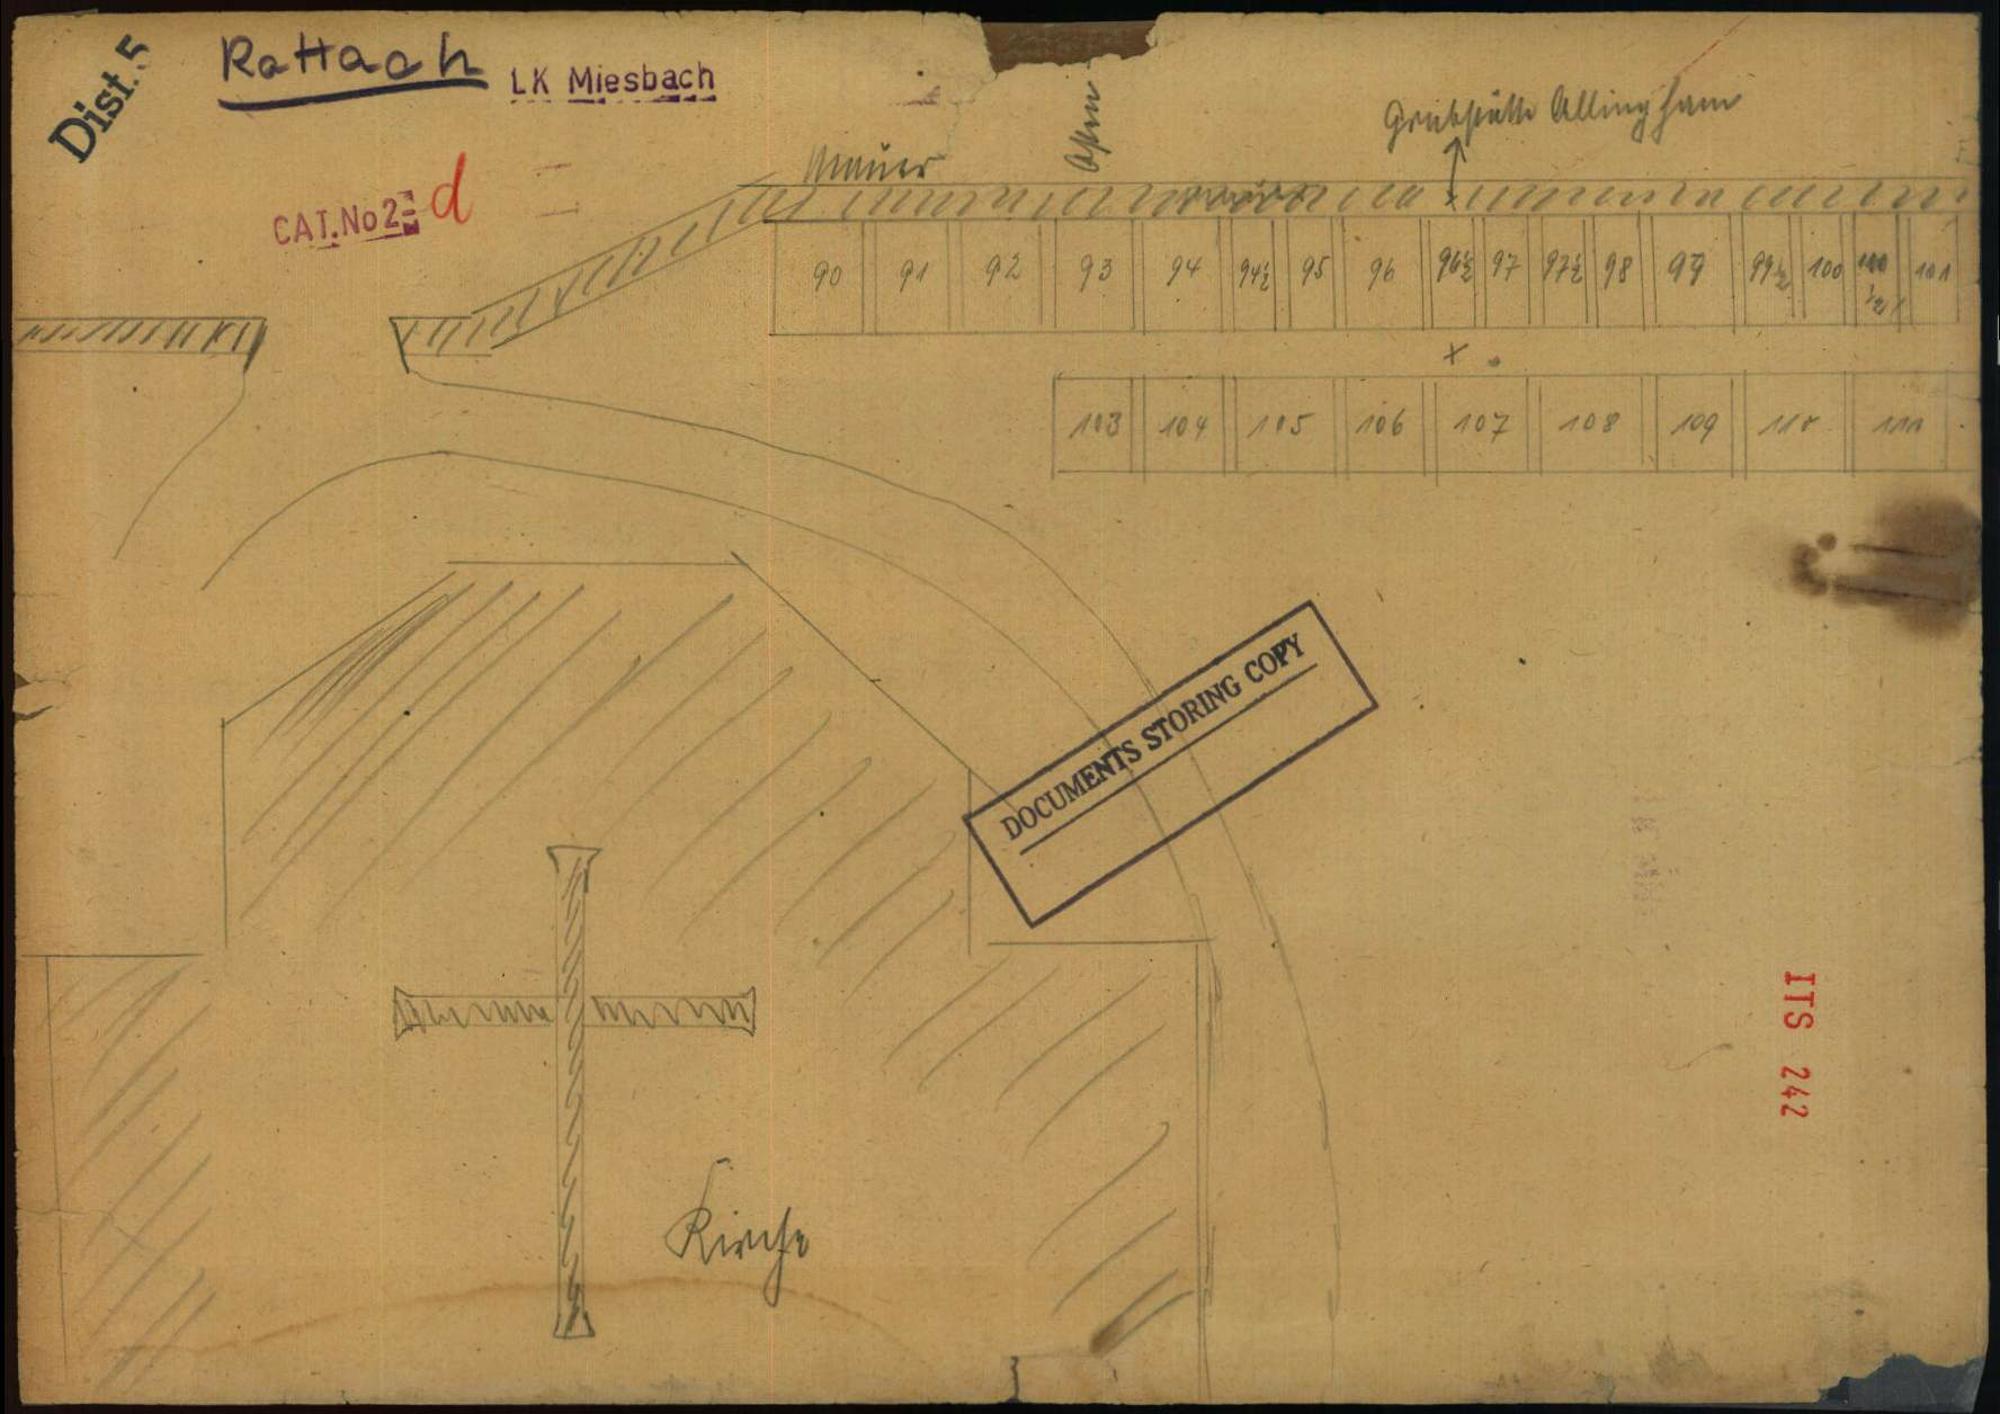 Dist. 5
Rottach
LK Miesbach
CAT.No 2
d
Mauer
Osten
Grabstätte Allingham
90 91 92 93 94 94½ 95 96 96½ 97 97½ 98 99 99½ 100 100½ 101
103 104 105 106 107 108 109 110 111
DOCUMENTS STORING COPY
ITS 242
Kirche